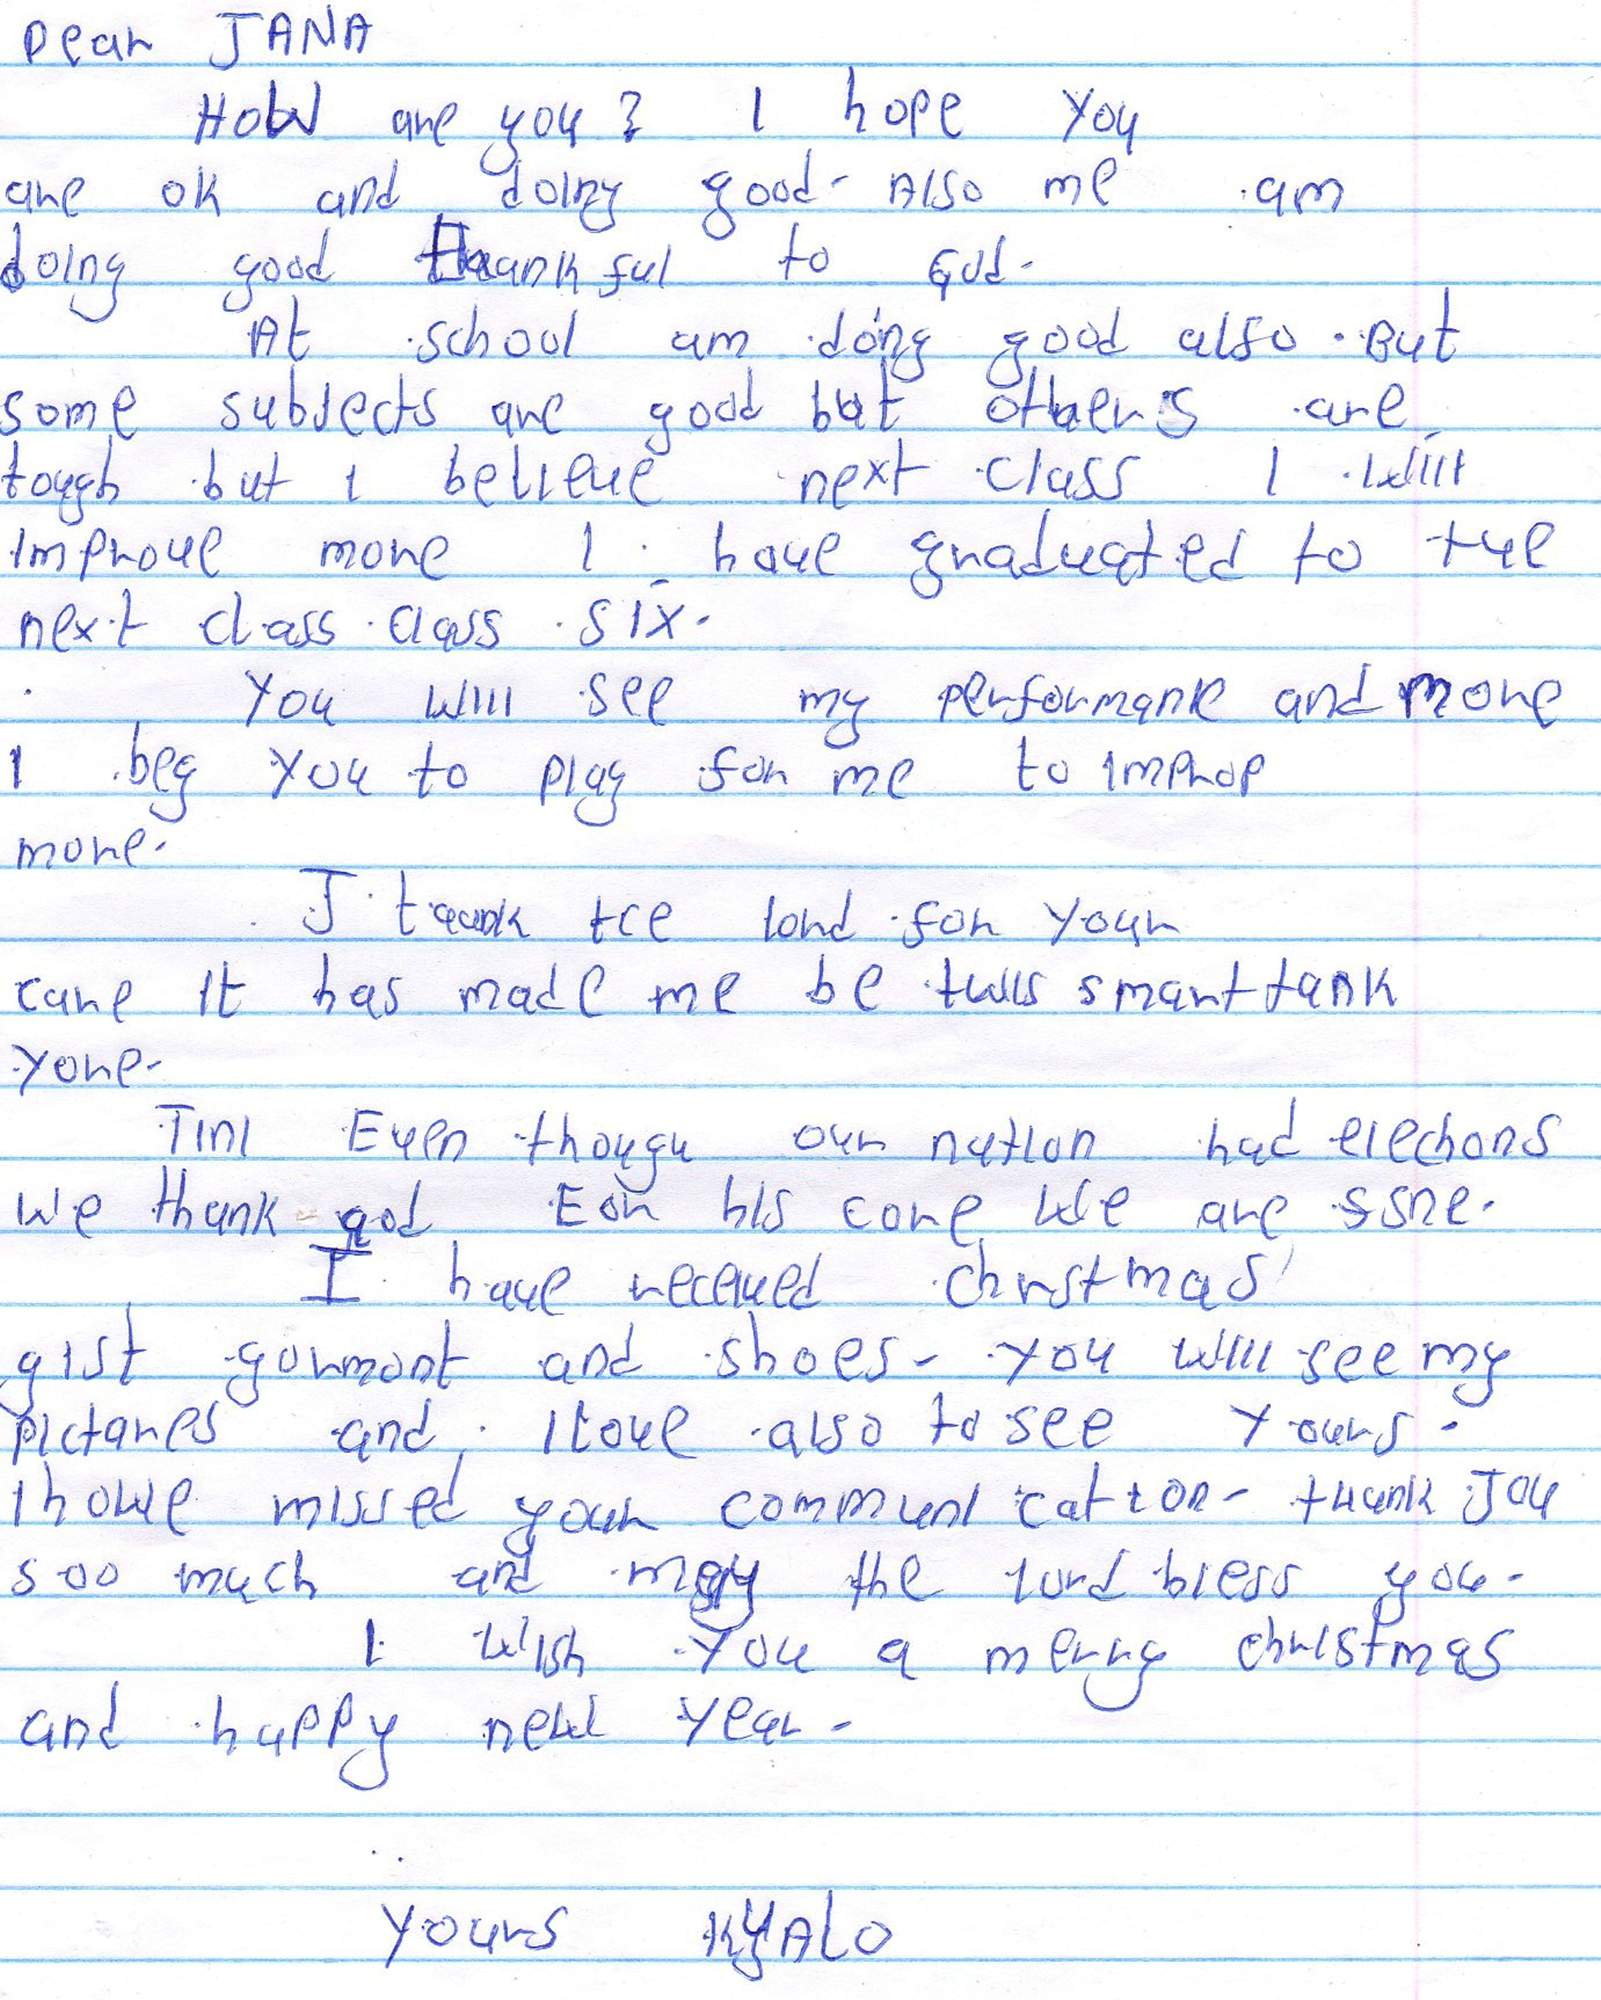 Dear JANA
HOW are you? I hope you
are ok and doing good. Also me am
doing good thankful to God.
At school am doing good also. But
some subjects are good but others are
tough but I believe next class I will
improve more I have graduated to the
next class class six.
You will see my performance and more
I beg you to play for me to improp
more.
I tank tce lord for your
care it has made me be twis smart tank
yore.
Tini Even thougu our nution had elections
we thank god For his core we are ssne.
I have receved chrstmas
gist gorment and shoes. You will see my
pictares and I love also to see yours.
I howe missed your communication. thank you
soo much and may the lord bless you.
I wish you a merry christmas
and happy new year.
Yours KYALO